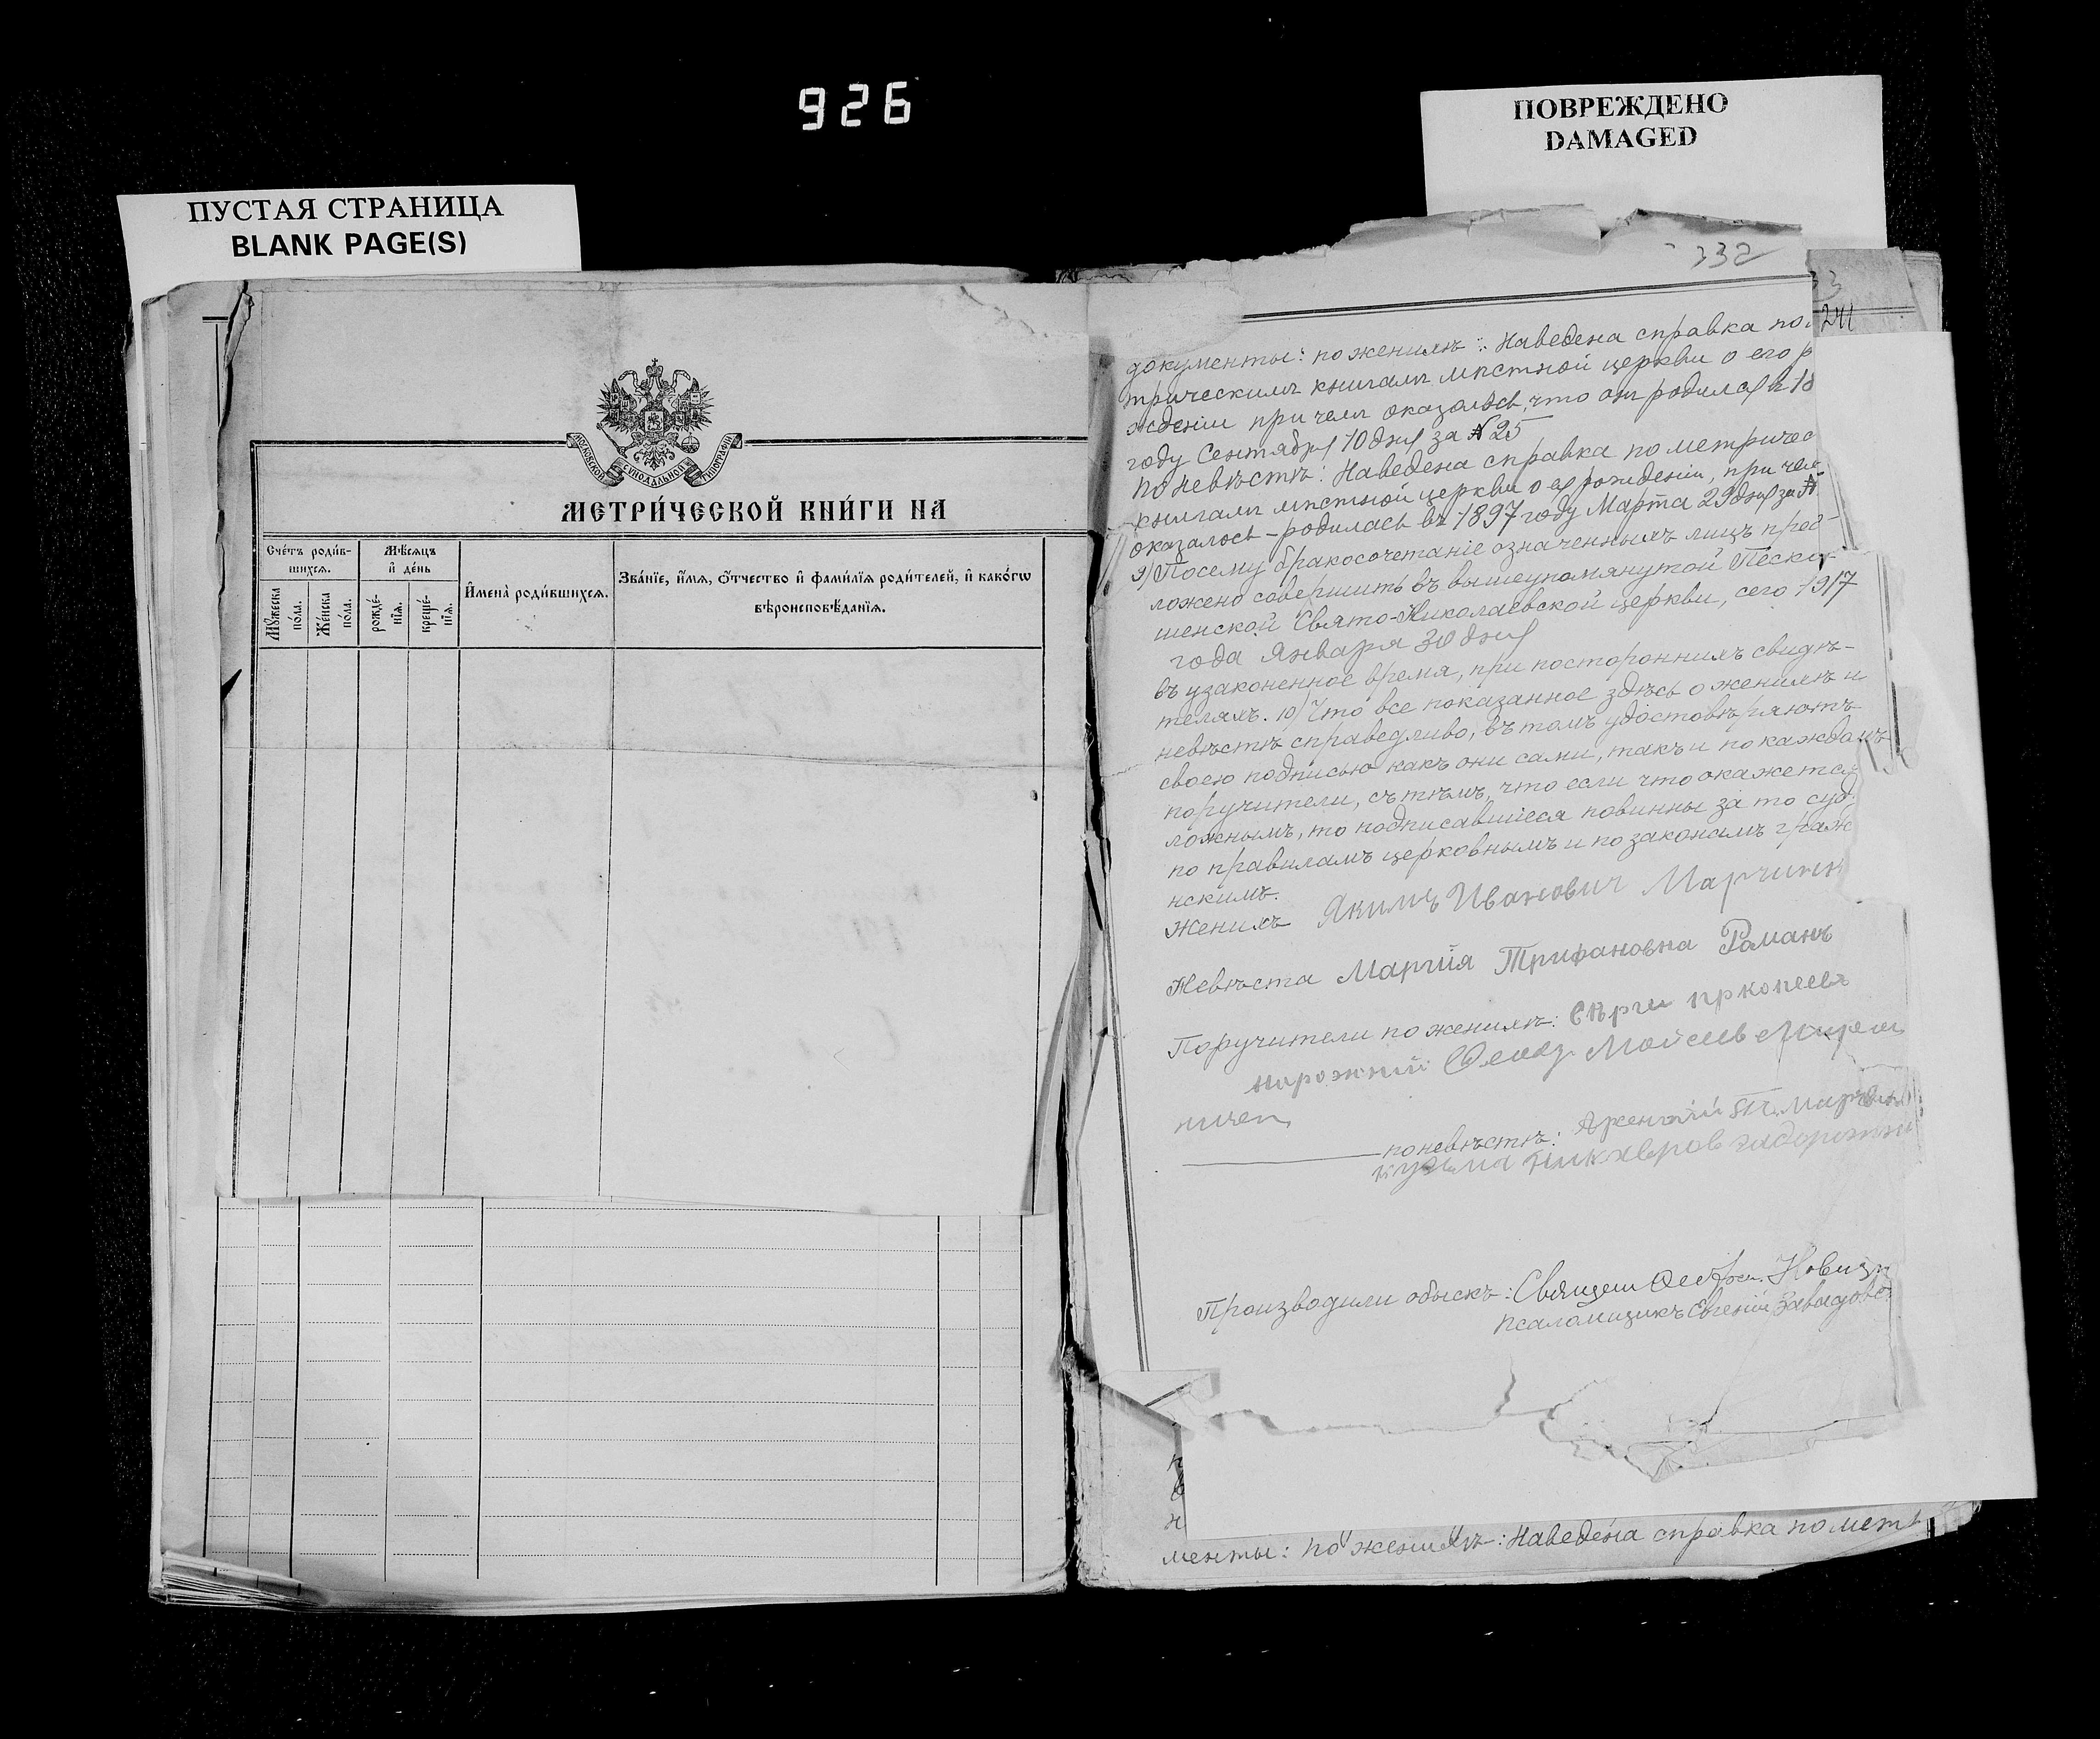 926
ПОВРЕЖДЕНО
DAMAGED
ПУСТАЯ СТРАНИЦА
BLANK PAGE(S)
МОСКОВСКОЙ СѴНОДАЛЬНОЙ ТИПОГРАФІИ
МЕТРИ́ЧЕСКОЙ КНИ́ГИ НА
Сче́тъ роди́в-
шихсѧ.
Мѣ́сѧцъ
и҆ де́нь
И҆мена̀ роди́вшихсѧ.
Зва́нїе, и҆́мѧ, ѻ҆́тчество и҆ фами́лїѧ роди́телей, и҆ како́гѡ
вѣроисповѣ́данїѧ.
Мꙋ́жеска
по́ла.
Же́нска
по́ла.
рожде́-
нїѧ.
креще́-
нїѧ.
332
33
241
документы: по женихѣ: Наведена справка по
трическимъ книгамъ мѣстной церкви о его р
жденіи при чемъ оказалось, что онъ родился въ 18
году Сентября 10 дня за № 25
По невѣстѣ: Наведена справка по метричес
книгамъ мѣстной церкви о ея рожденіи, при чем
оказалось – родилась въ 1897 году Марта 29 дня за №
9) Посему бракосочетаніе означенныхъ лицъ пред-
ложено совершить въ вышеупомянутой Песко-
шенской Свято-Николаевской церкви, сего 1917
года Января 30 дня
въ узаконенное время, при постороннихъ свидѣ-
теляхъ. 10) Что все показанное здѣсь о женихѣ и
невѣстѣ справедливо, въ томъ удостовѣряютъ
своею подписью какъ они сами, такъ и по каждомъ
поручители, съ тѣмъ, что если что окажется
ложнымъ, то подписавшіеся повинны за то суд
по правиламъ церковнымъ и по законамъ граж
нскимъ.
Женихъ Якимъ Иванович Марчинк
Невѣста Марiя Трифановна Романъ
Поручители по женихѣ: Сѣрги пркопеевъ
Мойсеевъ
ничен
по невѣстѣ:
кузьма
Производили обыскъ: Священ Новиц
Псаломщикъ Евгеній Завадовс
н
менты: по женихѣ: Наведена справка по мет